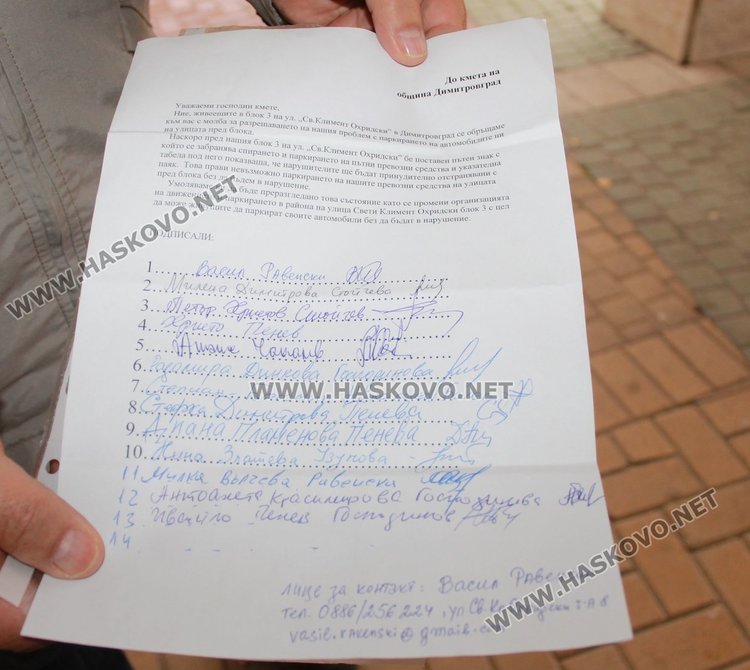 До кмета на
община Димитровград
Уважаеми господин кмете,
Ние, живеещите в блок 3 на ул. „Св.Климент Охридски" в Димитровград се обръщаме
към вас с молба за разрешаването на нашия проблем с паркирането на автомобилите ни
на улицата пред блока.
Наскоро пред нашия блок 3 на ул. „Св.Климент Охридски" бе поставен пътен знак с
който се забранява спирането и паркирането на пътни превозни средства и указателна
табела под него показваща, че нарушителите ще бъдат принудително отстранявани с
паяк. Това прави невъзможно паркирането на нашите превозни средства на улицата
пред блока без да бъдем в нарушение.
Умоляваме бъде преразгледано това състояние като се промени организацията
на движение паркирането в района на улица Свети Климент Охридски блок 3 с цел
да може да паркират своите автомобили без да бъдат в нарушение.
ПОДПИСАЛИ:
1. Васил Равенски
2. Милена Димитрова Стойчева
3. Петър Христов Стойчев
4. Христо Пенев
5.
6. Динкова Господинова
7.
8. Стойка Димитрова Пенева
9. Пламенова Пенева
10. Инна Златева Узунова
11 Милка Вълчева Равенски
12 Антоанета Красимирова Господинова
13 Ивайло Пенев Господинов
14
лице за контакт: Васил
тел. 0886/256 224, ул Св. 3-А-8
vasil.ravenski@gmail.
WWW.HASKOVO.NET
WWW.HASKOVO.NET
WWW.HASKOVO.NET
WWW.HASKOVO.NET